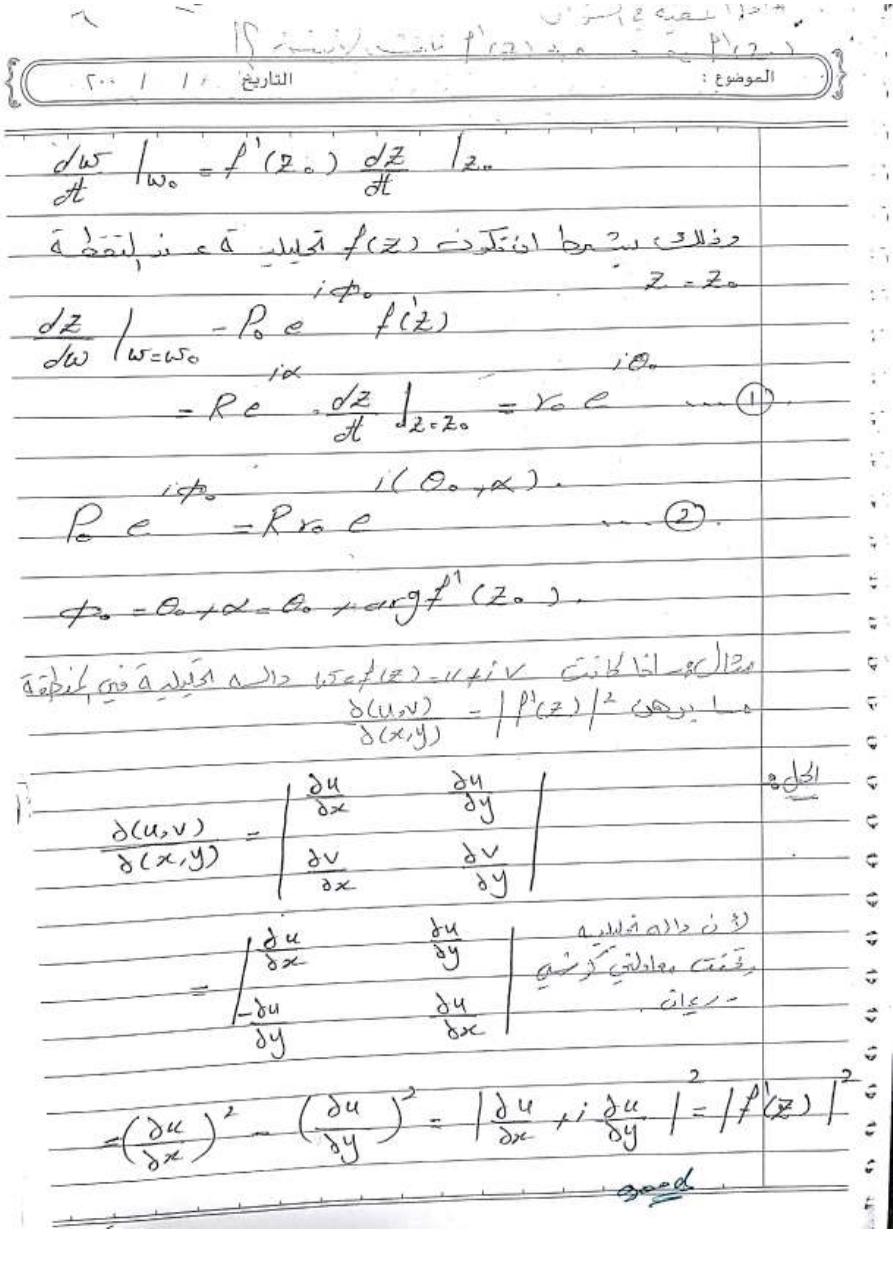 f'(z)
الموضوع : التاريخ / / ٢٠٠
dw/dt |w₀ = f'(z₀) dz/dt |z₀
وذلك بشرط ان تكون f(z) تحليلية عند النقطة
z = z₀
dz/dw |w=w₀ = P₀ e^{iφ₀} f'(z)
= R e^{iα} . dz/dt |z=z₀ = r₀ e^{iθ₀} .... ①.
P₀ e^{iφ₀} = R r₀ e^{i(θ₀+α)}. .... ②.
φ₀ = θ₀ + α = θ₀ + arg f'(z₀).
مثال: اذا كانت w = f(z) = u + iv داله تحليلية في منطقة
ما برهن ∂(u,v)/∂(x,y) = |f'(z)|²
الحل:
∂(u,v)/∂(x,y) = | ∂u/∂x ∂u/∂y |
| ∂v/∂x ∂v/∂y |
= | ∂u/∂x ∂u/∂y | لأن داله تحليليه
| -∂u/∂y ∂u/∂x | معادلتي كوشي
- ريمان.
= (∂u/∂x)² - (∂u/∂y)² = |∂u/∂x + i ∂u/∂y|² = |f'(z)|²
good